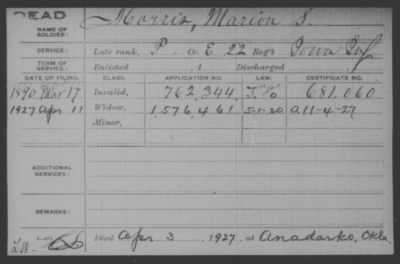 DEAD
NAME OF SOLDIER: Morris, Marion S.
SERVICE: Late rank, P Co. E, 22 Reg't Iowa Inf
TERM OF SERVICE: Enlisted 1 Discharged
DATE OF FILING. CLASS. APPLICATION NO. LAW. CERTIFICATE NO.
1890 Mar 17 Invalid, 762,344 681,060
1927 Apr 11 Widow, 1,576,461 5-1-20 A11-4-27
Minor,
ADDITIONAL SERVICES:
REMARKS:
Died Apr 3, 1927, at Anadarko, Okla